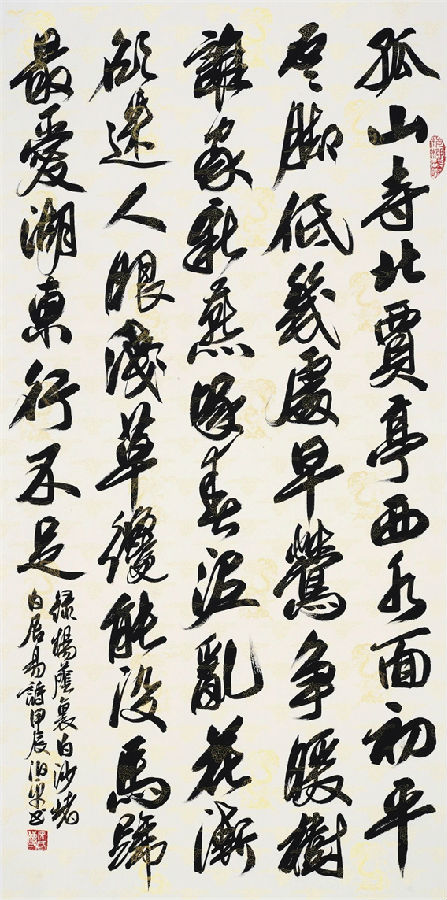 孤山寺北賈亭西水面初平
雲脚低幾處早鶯争暖樹
誰家新燕啄春泥亂花漸
欲迷人眼淺草纔能没馬蹄
最愛湖東行不足
緑楊蔭裏白沙堤
白居易詩甲辰泊书